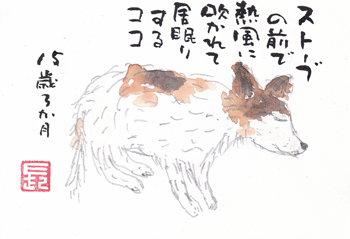 ストーブ
の前で
熱風に
吹かれて
居眠り
する
ココ
15歳3か月